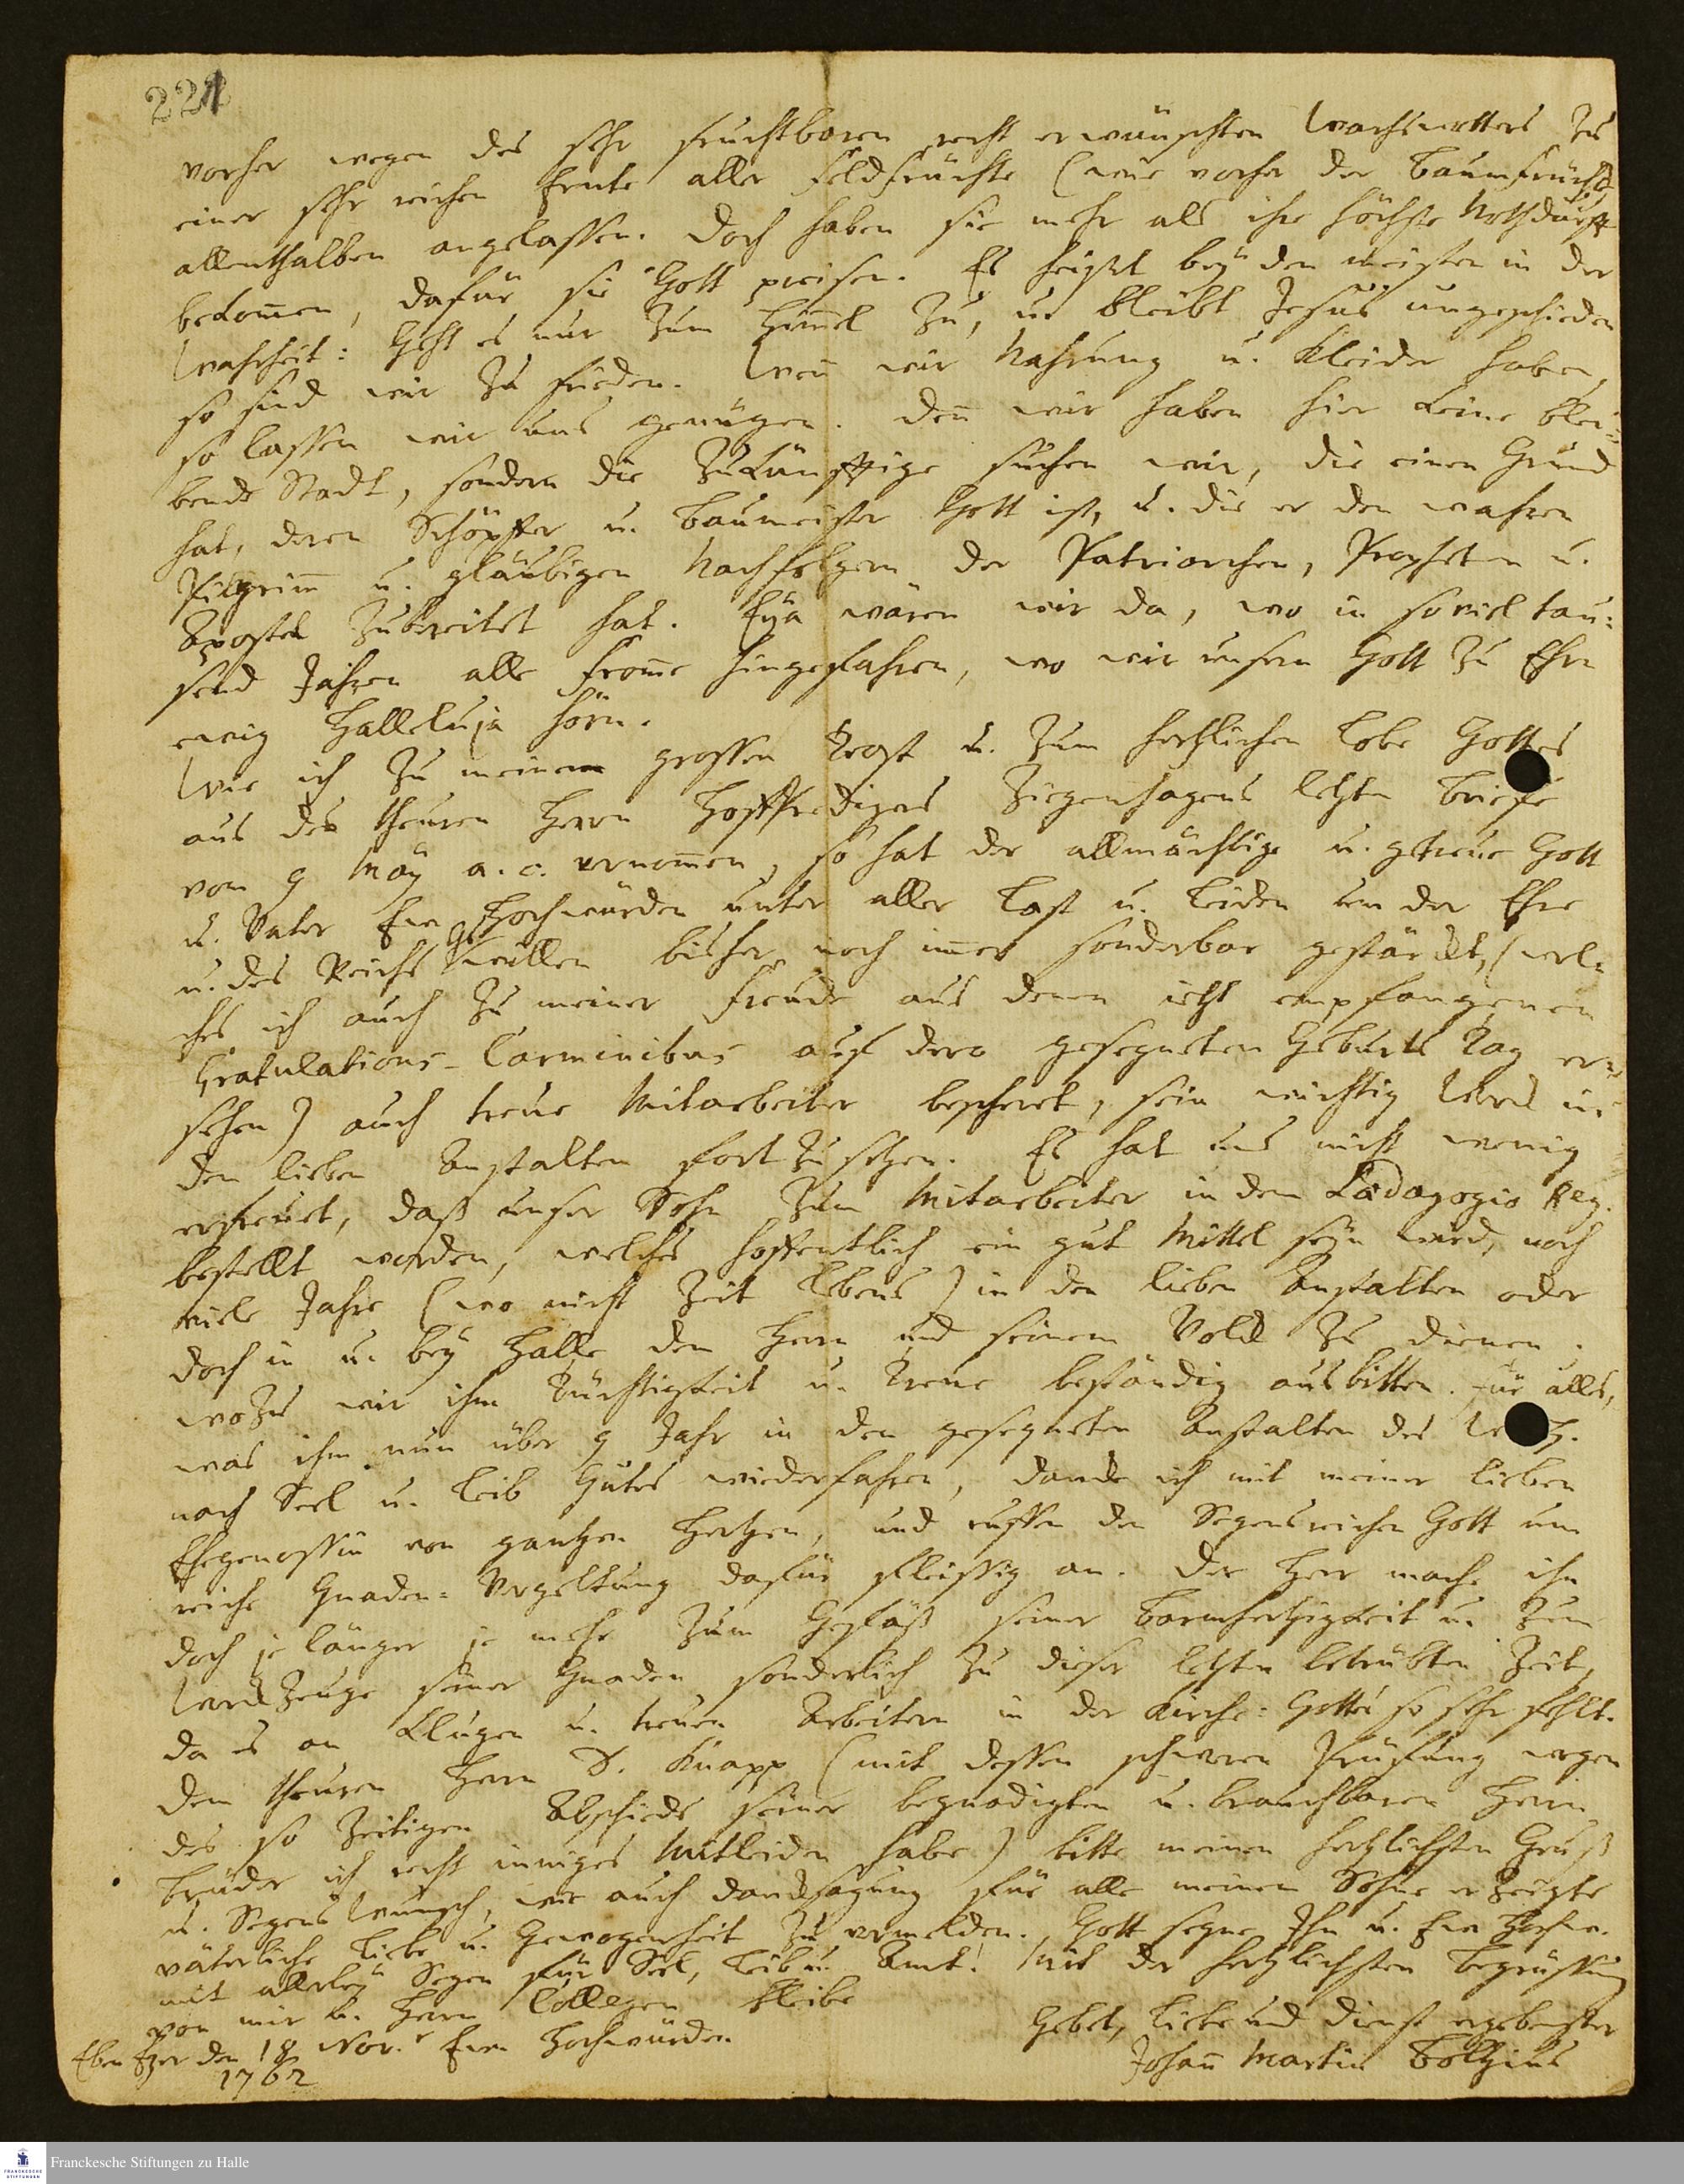 221
vorher wegen des sehr fruchtbaren recht erwünschten Wachswetters zu
einer sehr reichen Ernte aller Feldfrüchte (wie vorher der Baumfrüchte
allenthalben angelassen. Doch haben sie mehr als ihre höchste Nothdurfft
bekom̅en, dafür sie Gott preisen. Es heißet bey den meisten in der
Wahrheit: Geht es nur zum Him̅el zu, u. bleibt Jesus ungeschieden
so sind wir zu frieden. Wen̅ wir Nahrung u. Kleider haben,
so lassen wir uns genügen. Den̅ wir haben hier keine blei-
bende Stadt, sondern die zukünfftige suchen wir, die einen Grund
hat, deren Schöpffer u. Baumeister Gott ist, u. die er den wahren
Pilgrim̅ u. gläubigen Nachfolgern der Patriarchen, Propheten u.
Apostel zubereitet hat. Eya wären wir da, wo in soviel tau-
send Jahren alle From̅e hingefahren, wo wir unserm Gott zu Ehrn
ewig Halleluja hörn.
Wie ich zu meinem grossen Trost u. zum hertzlichen Lobe Gottes
aus des theuren Herrn Hoffpredigers Ziegenhagens letzten Briefe
vom 9 May a. c. vernom̅en, so hat der allmächtige u. getreue Gott
u. Vater Eur Hochwürden unter aller Last u. Leiden um der Ehre
u. des Reichs G. willen bisher noch im̅er sonderbar gestärckt, (wel-
ches ich auch zu meiner Freude aus denen jetzt empfangenen
Gratulations-Carminibus auf dero gesegneten Geburts Tag er-
sehen) auch treue Mitarbeiter bescheret, sein wichtig Werck in
den lieben Anstalten fortzusetzen. Es hat uns nicht wenig
erfreuet, daß unser Sohn zum Mitarbeiter in dem Pädagogio Reg.
bestellt worden, welches hoffentlich ein gut Mittel seyn wird, noch
viele Jahre (wo nicht Zeit Lebens) in den lieben Anstalten oder
doch in u. bey Halle dem Herrn und seinem Volck zu dienen.
wozu wir ihm Tüchtigkeit u. Treue beständig ausbitten. Für alles,
was ihm nun über 9 Jahr in den gesegneten Anstalten des
nach Seel u. Leib Gutes wiederfahren, dancke ich mit meiner lieben
Ehegenossin von gantzen Hertzen, und ruffen den Segensreichen Gott um
reiche Gnaden-Vergeltung dafür fleissig an. Der Herr mache ihn
doch je länger je mehr zum Gefäß seiner Barmhertzigkeit u. zum
Werckzeuge seiner Gnaden sonderlich zu dieser letzten betrübten Zeit,
da es an klugen u. treuen Arbeitern in der Kirche Gottes so sehr fehlt.
Dem theuren Herrn D. Knapp (mit dessen schweren Prüfung wegen
des so zeitigen Abschieds seiner begnadigten u. brauchbaren Herrn
Brüder ich recht inniges Mitleiden habe) bitte meinen hertzlichsten Gruß
u. Segens Wunsch, wie auch Dancksagung für alle meinem Sohne erzeigte
väterliche Liebe u. Gewogenheit zu vermelden. Gott segne Ihn u. Eur Hochw.
mit allerley Segen für Seel, Leib u. Amt. Mit der hertzlichsten Begrüssung
von mir u. Herrn Collegen bleibe
Eben Ezer den 18 Nov.r Eurn Hochwürden
1762
Gebet, Liebe und Dienst ergebenster
Johan̅ Martin Boltzius
Franckesche Stiftungen zu Halle
FRANCKESCHE STIFTUNGEN